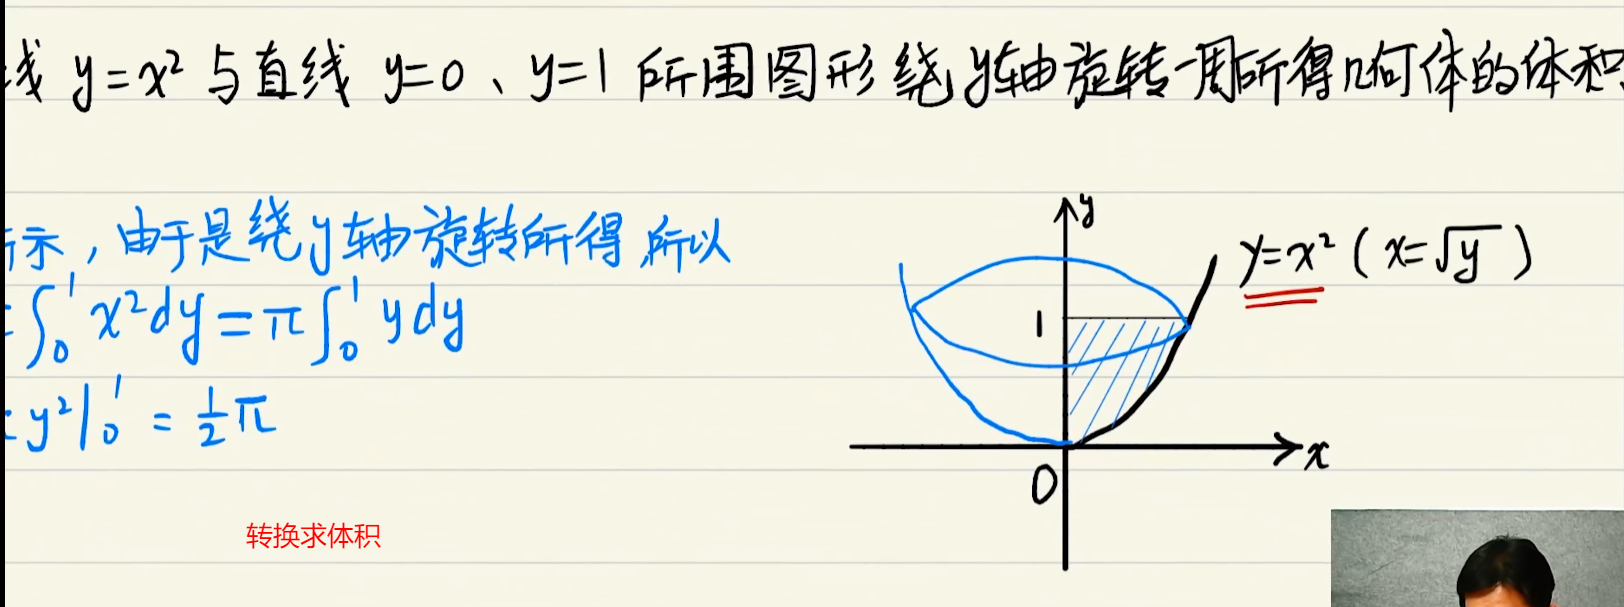 线 y=x² 与直线 y=0、y=1 所围图形绕y轴旋转一周所得几何体的体积
示，由于是绕y轴旋转所得,所以
=∫₀¹ x²dy=π∫₀¹ ydy
y²|₀¹ = ½π
转换求体积
y
y=x² ( x=√y )
1
0
x